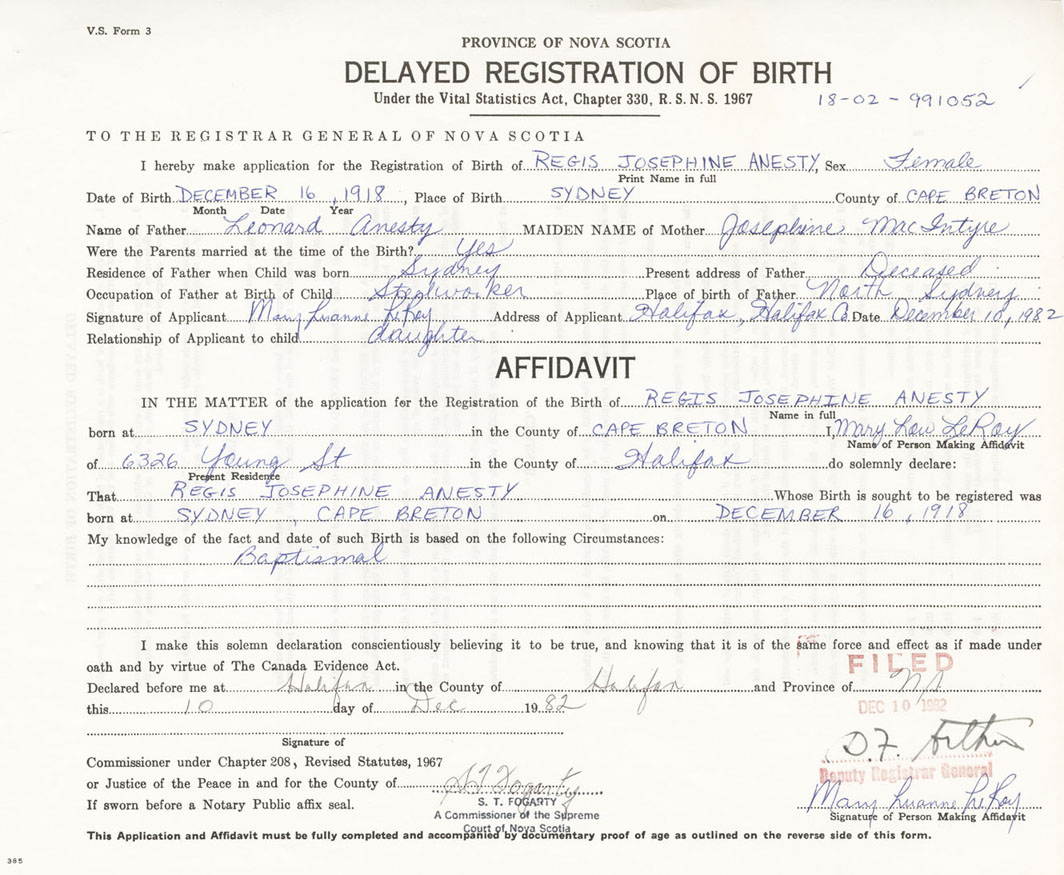 V.S. Form 3
PROVINCE OF NOVA SCOTIA
DELAYED REGISTRATION OF BIRTH
Under the Vital Statistics Act, Chapter 330, R. S. N. S. 1967 18-02-991052
TO THE REGISTRAR GENERAL OF NOVA SCOTIA
I hereby make application for the Registration of Birth of REGIS JOSEPHINE ANESTY, Sex Female
Print Name in full
Date of Birth DECEMBER 16, 1918, Place of Birth SYDNEY County of CAPE BRETON
Month Date Year
Name of Father Leonard Anesty MAIDEN NAME of Mother Josephine MacIntyre
Were the Parents married at the time of the Birth? Yes
Residence of Father when Child was born Sydney Present address of Father Deceased
Occupation of Father at Birth of Child Steelworker Place of birth of Father North Sydney
Signature of Applicant Mary Luanne LeRoy Address of Applicant Halifax, Halifax Co Date December 10, 1982
Relationship of Applicant to child daughter
AFFIDAVIT
IN THE MATTER of the application for the Registration of the Birth of REGIS JOSEPHINE ANESTY
Name in full
born at SYDNEY in the County of CAPE BRETON I, Mary Lou LeRoy
Name of Person Making Affidavit
of 6326 Young St in the County of Halifax do solemnly declare:
Present Residence
That REGIS JOSEPHINE ANESTY Whose Birth is sought to be registered was
born at SYDNEY, CAPE BRETON on DECEMBER 16, 1918
My knowledge of the fact and date of such Birth is based on the following Circumstances:
Baptismal
I make this solemn declaration conscientiously believing it to be true, and knowing that it is of the same force and effect as if made under
oath and by virtue of The Canada Evidence Act.
FILED
Declared before me at Halifax in the County of Halifax and Province of NS
this 10 day of Dec 1982
DEC 10 1982
Signature of
D.F. Arthur
Commissioner under Chapter 208, Revised Statutes, 1967
Deputy Registrar General
or Justice of the Peace in and for the County of S T Fogarty
Mary Luanne LeRoy
S. T. FOGARTY
If sworn before a Notary Public affix seal.
A Commissioner of the Supreme
Signature of Person Making Affidavit
Court of Nova Scotia
This Application and Affidavit must be fully completed and accompanied by documentary proof of age as outlined on the reverse side of this form.
385